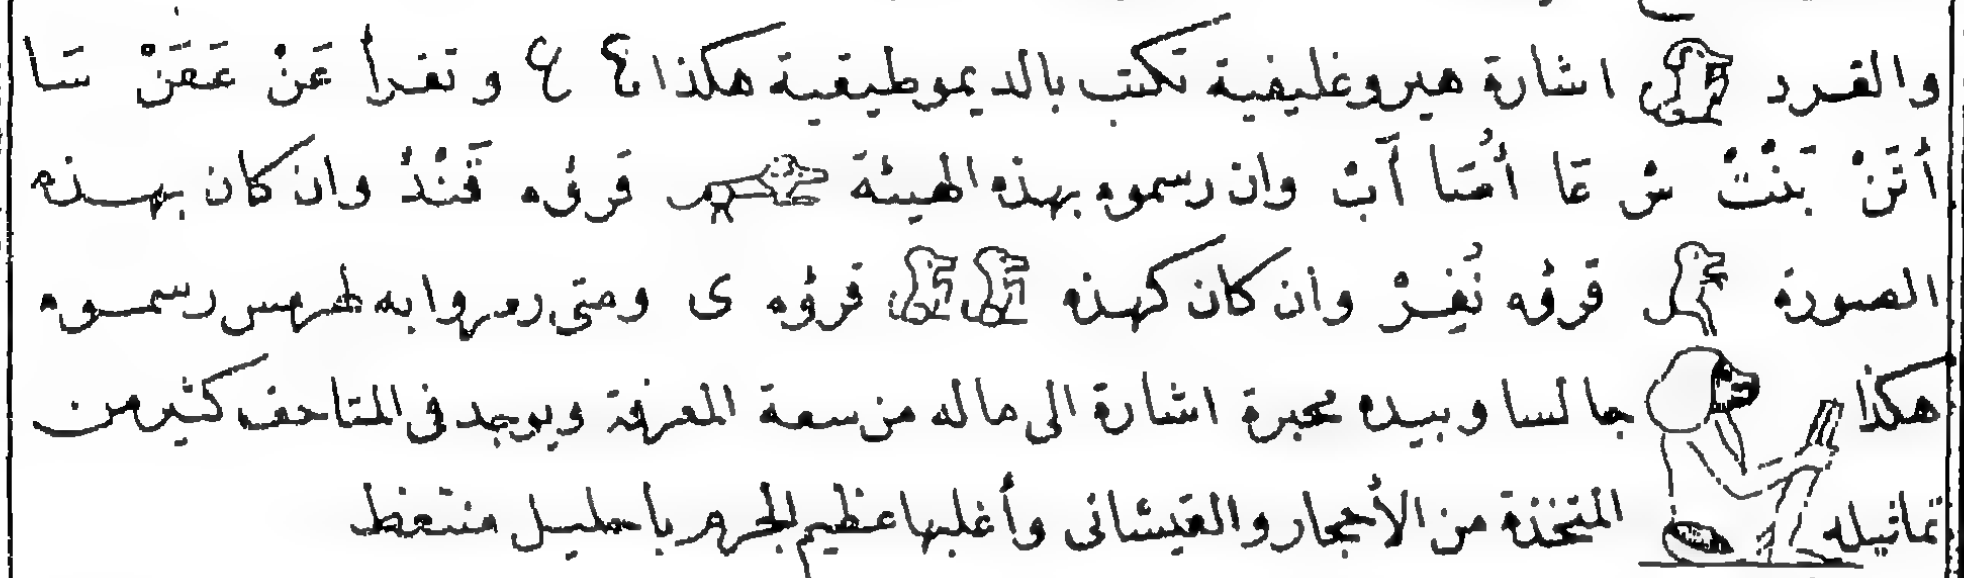 والقرد اشارة هيروغليفية تكتب بالديموطيقية هكذا ٤ ٤ و تقرأ عَنْ عَقَنْ سَا
أُتَنْ بَنْتْ ش عَا أُسَا آبْ وان رسموه بهذه الهيئة قرؤه قَنْدُ وان كان بهذه
الصورة قرؤه نُفِرْ وان كان كهذه قرؤه ى ومتى رمزوا به لهرمس رسموه
هكذا جالسا وبيده محبرة اشارة الى ماله من سعة المعرفة ويوجد فى المتاحف كثير من
تماثيله المتخذة من الأحجار والقيشانى وأغلبها عظيم الجرم باحليل منتعظ